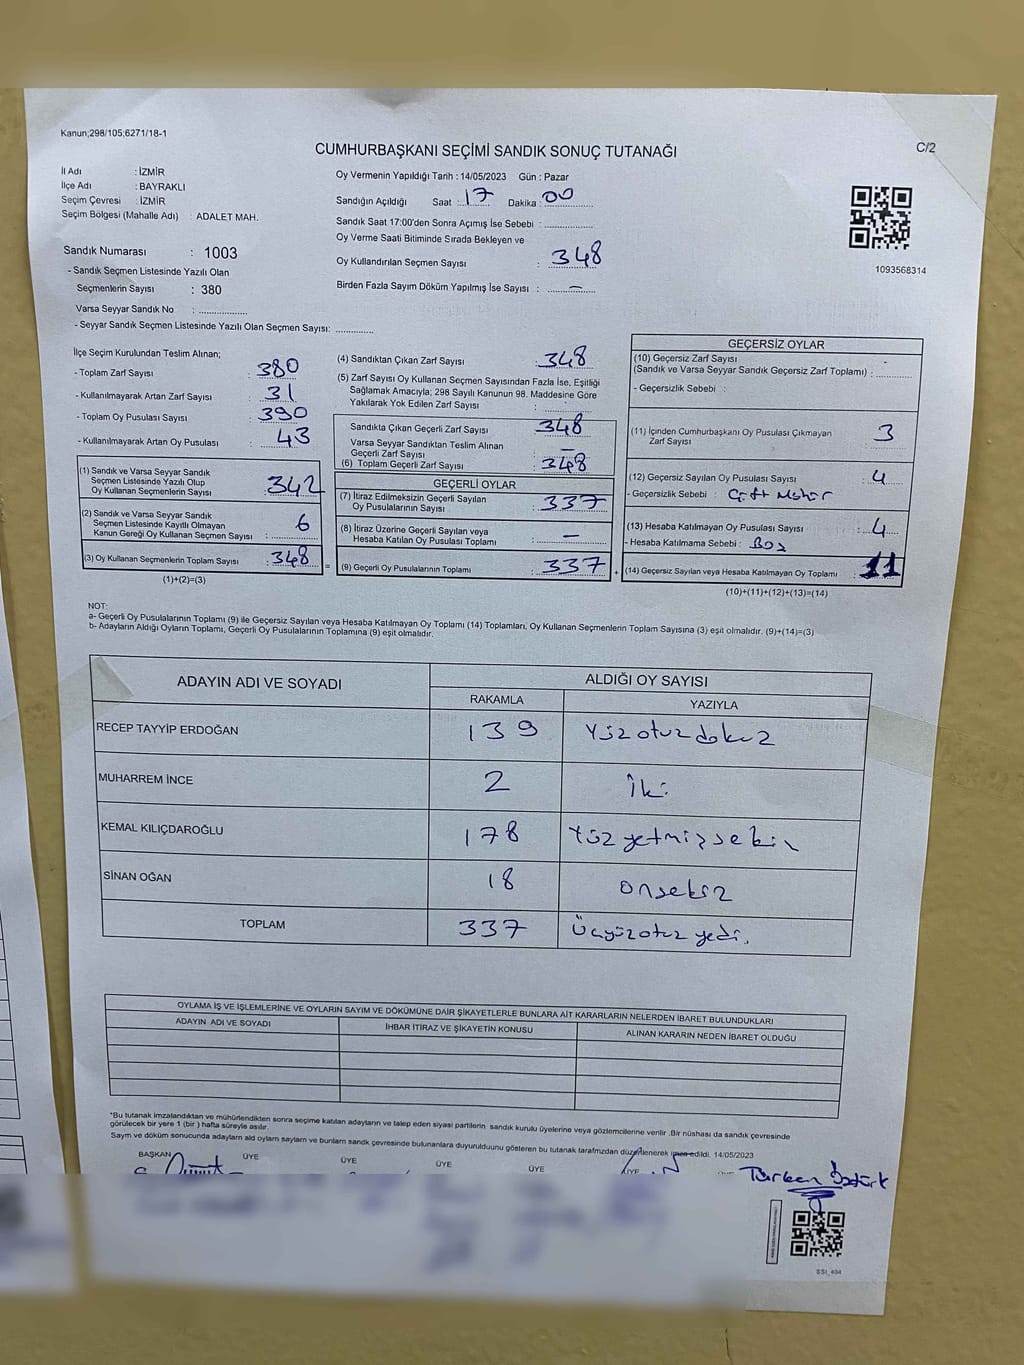 Kanun;298/105;6271/18-1
CUMHURBAŞKANI SEÇİMİ SANDIK SONUÇ TUTANAĞI
C/2
İl Adı : İZMİR
İlçe Adı : BAYRAKLI
Seçim Çevresi : İZMİR
Seçim Bölgesi (Mahalle Adı) : ADALET MAH.
Sandık Numarası : 1003
- Sandık Seçmen Listesinde Yazılı Olan
Seçmenlerin Sayısı : 380
Varsa Seyyar Sandık No : ..................
- Seyyar Sandık Seçmen Listesinde Yazılı Olan Seçmen Sayısı: .............
Oy Vermenin Yapıldığı Tarih : 14/05/2023 Gün : Pazar
Sandığın Açıldığı Saat : 17 Dakika : 00
Sandık Saat 17:00'den Sonra Açımış İse Sebebi : ..............
Oy Verme Saati Bitiminde Sırada Bekleyen ve
Oy Kullandırılan Seçmen Sayısı : 348
Birden Fazla Sayım Döküm Yapılmış İse Sayısı : —
1093568314
İlçe Seçim Kurulundan Teslim Alınan;
- Toplam Zarf Sayısı : 380
- Kullanılmayarak Artan Zarf Sayısı : 31
- Toplam Oy Pusulası Sayısı : 390
- Kullanılmayarak Artan Oy Pusulası : 43
(1) Sandık ve Varsa Seyyar Sandık
Seçmen Listesinde Yazılı Olup
Oy Kullanan Seçmenlerin Sayısı : 342
(2) Sandık ve Varsa Seyyar Sandık
Seçmen Listesinde Kayıtlı Olmayan
Kanun Gereği Oy Kullanan Seçmen Sayısı : 6
(3) Oy Kullanan Seçmenlerin Toplam Sayısı : 348
(1)+(2)=(3)
(4) Sandıktan Çıkan Zarf Sayısı : 348
(5) Zarf Sayısı Oy Kullanan Seçmen Sayısından Fazla İse, Eşitliği
Sağlamak Amacıyla; 298 Sayılı Kanunun 98. Maddesine Göre
Yakılarak Yok Edilen Zarf Sayısı :
Sandıkta Çıkan Geçerli Zarf Sayısı : 348
Varsa Seyyar Sandıktan Teslim Alınan
Geçerli Zarf Sayısı : —
(6) Toplam Geçerli Zarf Sayısı : 348
GEÇERLİ OYLAR
(7) İtiraz Edilmeksizin Geçerli Sayılan
Oy Pusulalarının Sayısı : 337
(8) İtiraz Üzerine Geçerli Sayılan veya
Hesaba Katılan Oy Pusulası Toplamı : —
= (9) Geçerli Oy Pusulalarının Toplamı : 337 +
GEÇERSİZ OYLAR
(10) Geçersiz Zarf Sayısı -
(Sandık ve Varsa Seyyar Sandık Geçersiz Zarf Toplamı) : .........
- Geçersizlik Sebebi :
(11) İçinden Cumhurbaşkanı Oy Pusulası Çıkmayan 3
Zarf Sayısı
(12) Geçersiz Sayılan Oy Pusulası Sayısı : 4
- Geçersizlik Sebebi : Çift Mühür
(13) Hesaba Katılmayan Oy Pusulası Sayısı : 4
- Hesaba Katılmama Sebebi : Boş
(14) Geçersiz Sayılan veya Hesaba Katılmayan Oy Toplamı : 11
(10)+(11)+(12)+(13)=(14)
NOT:
a- Geçerli Oy Pusulalarının Toplamı (9) ile Geçersiz Sayılan veya Hesaba Katılmayan Oy Toplamı (14) Toplamları, Oy Kullanan Seçmenlerin Toplam Sayısına (3) eşit olmalıdır. (9)+(14)=(3)
b- Adayların Aldığı Oyların Toplamı, Geçerli Oy Pusulalarının Toplamına (9) eşit olmalıdır.
ADAYIN ADI VE SOYADI ALDIĞI OY SAYISI
RAKAMLA YAZIYLA
RECEP TAYYİP ERDOĞAN 139 Yüzotuzdokuz
MUHARREM İNCE 2 İki
KEMAL KILIÇDAROĞLU 178 Yüzyetmişsekiz
SİNAN OĞAN 18 onsekiz
TOPLAM 337 Üçyüzotuzyedi.
OYLAMA İŞ VE İŞLEMLERİNE VE OYLARIN SAYIM VE DÖKÜMÜNE DAİR ŞİKAYETLERLE BUNLARA AİT KARARLARIN NELERDEN İBARET BULUNDUKLARI
ADAYIN ADI VE SOYADI İHBAR İTİRAZ VE ŞİKAYETİN KONUSU ALINAN KARARIN NEDEN İBARET OLDUĞU
*Bu tutanak imzalandıktan ve mühürlendikten sonra seçime katılan adayların ve talep eden siyasi partilerin sandık kurulu üyelerine veya gözlemcilerine verilir .Bir nüshası da sandık çevresinde
görülecek bir yere 1 (bir ) hafta süreyle asılır.
Sayım ve döküm sonucunda adayların ald oyların sayları ve bunların sandk çevresinde bulunanlara duyurulduunu gösteren bu tutanak tarafmzdan düzenlenerek imza edildi. 14/05/2023
BAŞKAN ÜYE ÜYE ÜYE ÜYE ÜYE
Türkan Öztürk